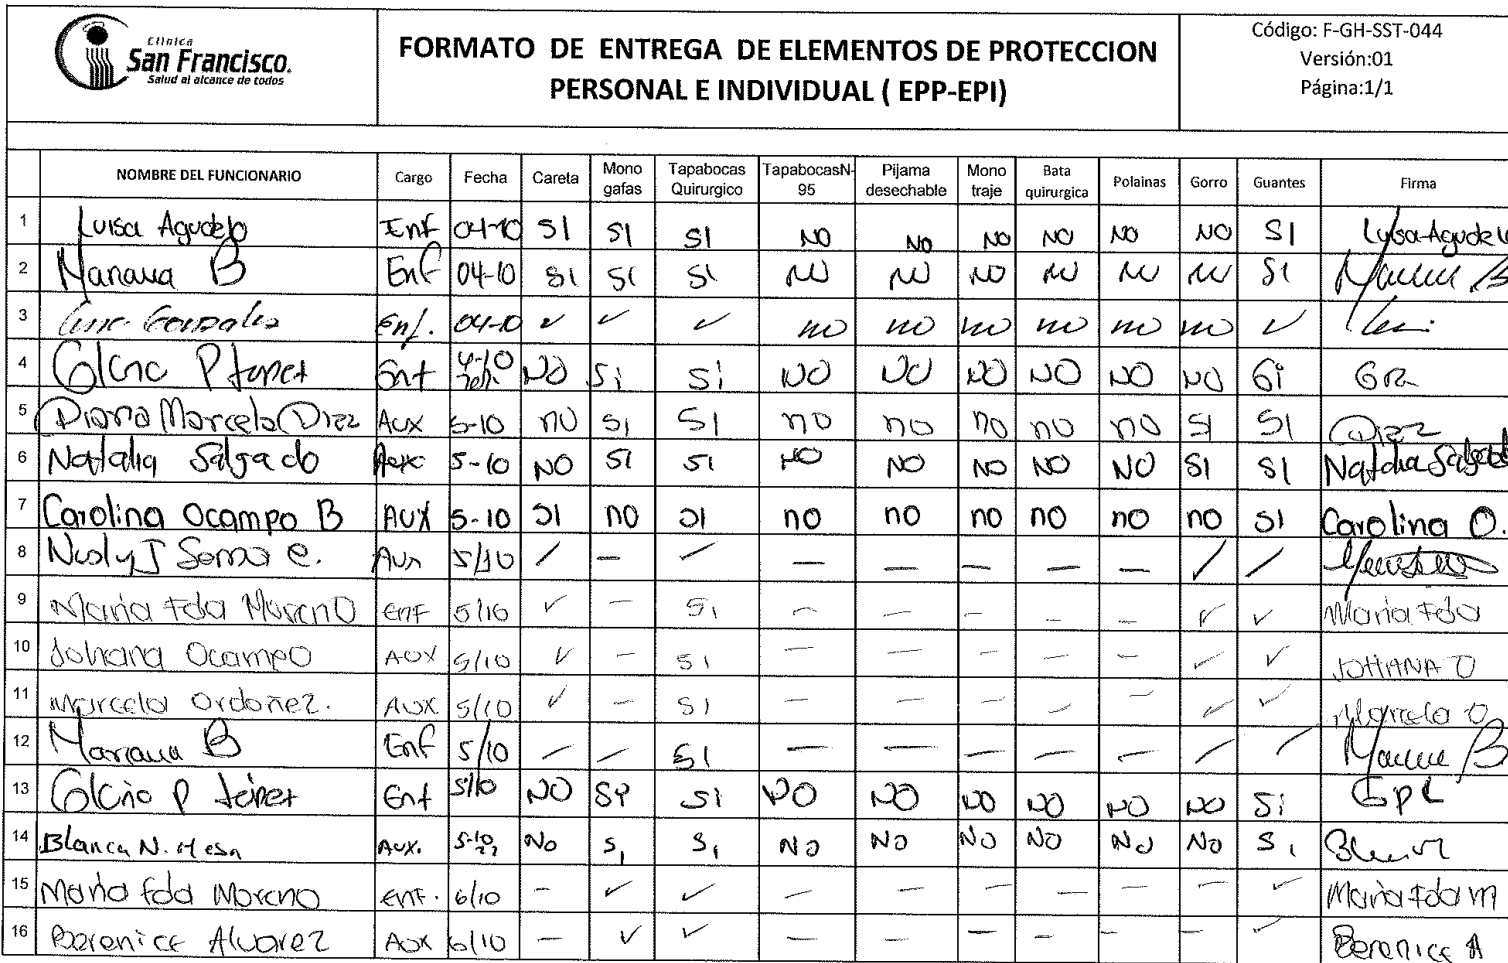 Clínica
San Francisco.
Salud al alcance de todos
FORMATO DE ENTREGA DE ELEMENTOS DE PROTECCION
PERSONAL E INDIVIDUAL ( EPP-EPI)
Código: F-GH-SST-044
Versión:01
Página:1/1
NOMBRE DEL FUNCIONARIO Cargo Fecha Careta Mono gafas Tapabocas Quirurgico TapabocasN-95 Pijama desechable Mono traje Bata quirurgica Polainas Gorro Guantes Firma
1 Luisa Agudelo Enf 04-10 SI SI SI NO NO NO NO NO NO SI Luisa Agudelo
2 Mariana B Enf 04-10 SI SI SI NO NO NO NO NO NO SI
3 Enf. 04-10 ✓ ✓ ✓ no no no no no no ✓
4 P Enf 4-10 NO Si Si NO NO NO NO NO NO Si
5 Diana Marcela Diez Aux 5-10 no SI SI no no no no no SI SI Diez
6 Natalia Salgado Aux 5-10 NO SI SI NO NO NO NO NO SI SI Natalia Salgado
7 Carolina Ocampo B AUX 5-10 SI no SI no no no no no no SI Carolina O.
8 Aux 5/10 / — ✓ — — — — — / /
9 Maria Fda Moreno enf 5/10 ✓ — Si — — — — — ✓ ✓ Maria Fda
10 Johana Ocampo AUX 5/10 ✓ — SI — — — — — ✓ ✓ JOHANA O
11 Marcela Ordoñez. AUX 5/10 ✓ — SI — — — — — ✓ ✓ Marcela O
12 Mariana B Enf 5/10 / / SI — — — — — / /
13 P Enf 5/10 NO SI Si NO NO NO NO NO NO Si GPL
14 Blanca N. Mesa Aux. 5-10 No Si Si No No No No No No Si
15 Maria fda Moreno enf. 6/10 — ✓ ✓ — — — — — — ✓ Maria Fda M
16 Berenice Alvarez Aux 6/10 — ✓ ✓ — — — — — — ✓ Berenice A